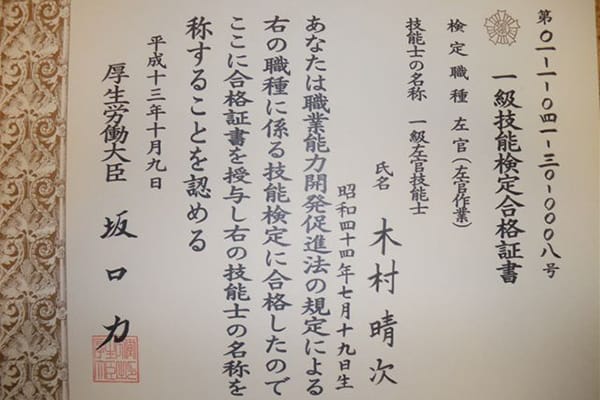 第01-1-041-30-0008号
一級技能検定合格証書
検定職種 左官(左官作業)
技能士の名称 一級左官技能士
氏名 木村晴次
昭和四十四年七月十九日生
あなたは職業能力開発促進法の規定による
右の職種に係る技能検定に合格したので
ここに合格証書を授与し右の技能士の名称を
称することを認める
平成十三年十月九日
厚生労働大臣 坂口力